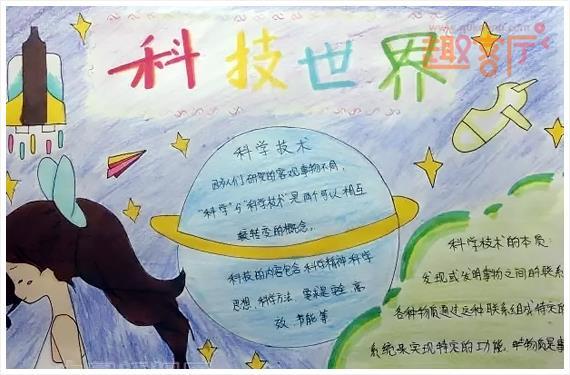 科技世界
趣客厅
科学技术
因人们研究的客观事物不同，
"科学"与"科学技术"是两个可以相互
转变的概念。
科技的内容包含科学精神科学
思想、科学方法、要求是安全、高
效、节能等
科学技术的本质：
发现或发明事物之间的联系
各种物质通过这种联系组成特定的
系统来实现特定的功能。